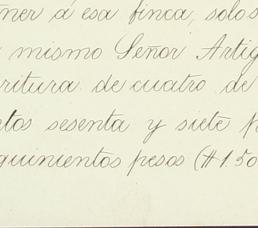 ner á esa finca, solos
mismo Señor Artig
ritura de cuatro de
tos sesenta y siete p
quinientos pesos (#150